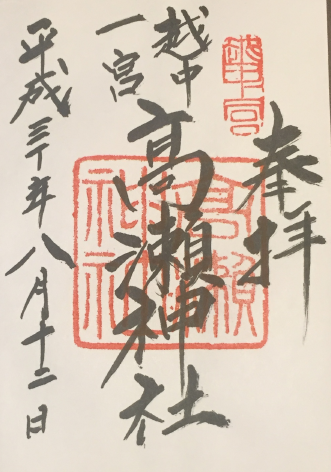 奉拝
越中
一宮
高瀬神社
平成三十年八月十二日
越中一宮
高瀬神社